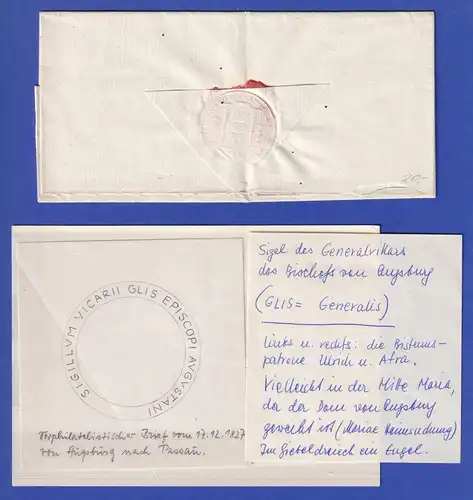 20,-
SIGILLVM VICARII GLIS EPISCOPI AVGVSTANI
Vorphilatelistischer Brief vom 17.12.1827
von Augsburg nach Passau.
Sigel des Generalvikars
des Bischofs von Augsburg
(GLIS = Generalis)
Links u. rechts: die Bistums-
patrone Ulrich u. Afra.
Vielleicht in der Mitte Maria,
der der Dom von Augsburg
geweiht ist (Mariae Heimsuchung)
Im Giebeldreieck ein Engel.